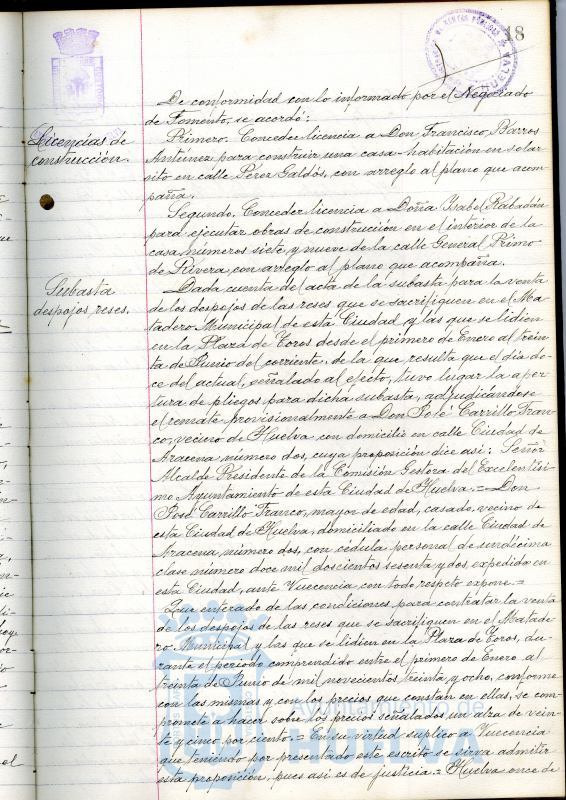 18
De conformidad con lo informado por el Negociado
de Fomento, se acordó:
Licencias de
construcción.
Primero. Conceder licencia a Don Francisco Barros
Antúnez para construir una casa-habitación en solar
sito en calle Pérez Galdós, con arreglo al plano que acom-
paña.
Segundo. Conceder licencia a Doña Isabel Rabadán
para ejecutar obras de construcción en el interior de la
casa números siete y nueve de la calle General Primo
de Rivera, con arreglo al plano que acompaña.
Subasta
despojos reses.
Dada cuenta del acta de la subasta para la venta
de los despojos de las reses que se sacrifiquen en el Ma-
tadero Municipal de esta Ciudad y las que se lidien
en la Plaza de Toros desde el primero de Enero al trein-
ta de Junio del corriente, de la que resulta que el día do-
ce del actual, señalado al efecto, tuvo lugar la aper-
tura de pliegos para dicha subasta, adjudicándose
el remate provisionalmente a Don José Carrillo Fran-
co, vecino de Huelva con domicilio en calle Ciudad de
Aracena número dos, cuya proposición dice así: Señor
Alcalde Presidente de la Comisión Gestora del Excelentísi-
mo Ayuntamiento de esta Ciudad de Huelva.= Don
José Carrillo Franco, mayor de edad, casado, vecino de
esta Ciudad de Huelva, domiciliado en la calle Ciudad de
Aracena, número dos, con cédula personal de undécima
clase número doce mil doscientos sesenta y dos expedida en
esta Ciudad, ante Vuecencia con todo respeto expone.=
Que enterado de las condiciones para contratar la venta
de los despojos de las reses que se sacrifiquen en el Matade-
ro Municipal y las que se lidien en la Plaza de Toros, du-
rante el periodo comprendido entre el primero de Enero al
treinta de Junio de mil novecientos treinta y ocho, conforme
con las mismas y con los precios que constan en ellas, se com-
promete a hacer sobre los precios señalados un alza de vein-
te y cinco por ciento.= En su virtud suplico a Vuecencia
que teniendo por presentado este escrito se sirva admitir
esta proposición, pues así es de justicia.= Huelva once de
Ayuntamiento de
HUELVA